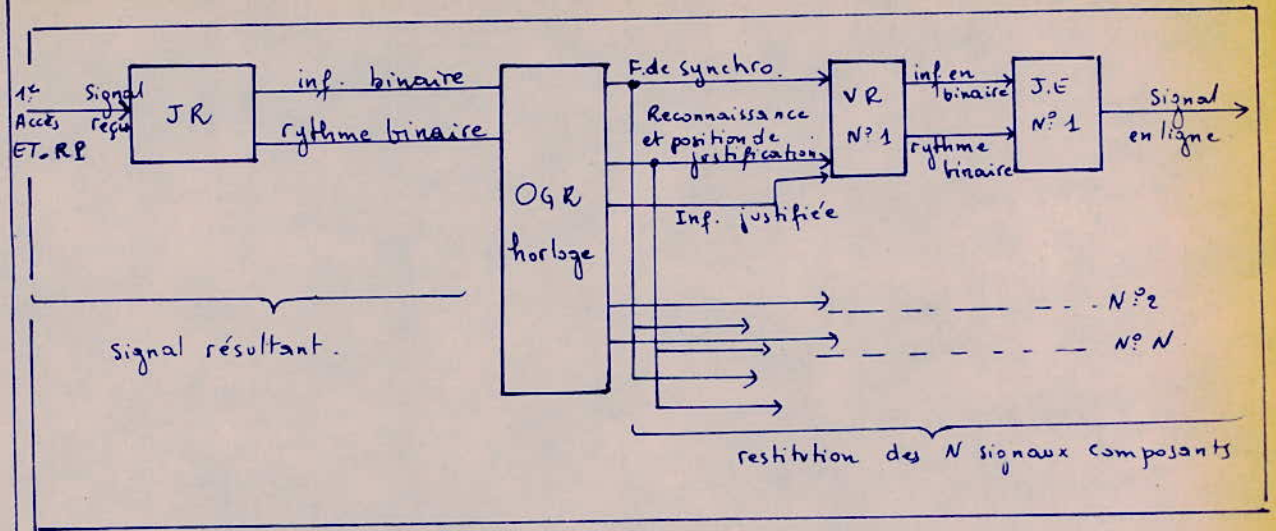 1er
Accès
ET_RP
Signal
reçu
JR
inf. binaire
rythme binaire
OGR
horloge
F. de synchro.
Reconnaissance
et position de
justification
Inf. justifiée
VR
N° 1
inf. en
binaire
rythme
binaire
J.E
N° 1
Signal
en ligne
N° 2
N° N
Signal résultant.
restitution des N signaux composants